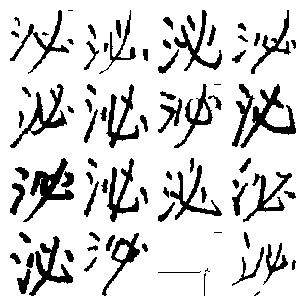 泌泌泌泌
泌泌泌泌
泌泌泌泌
泌泌泌